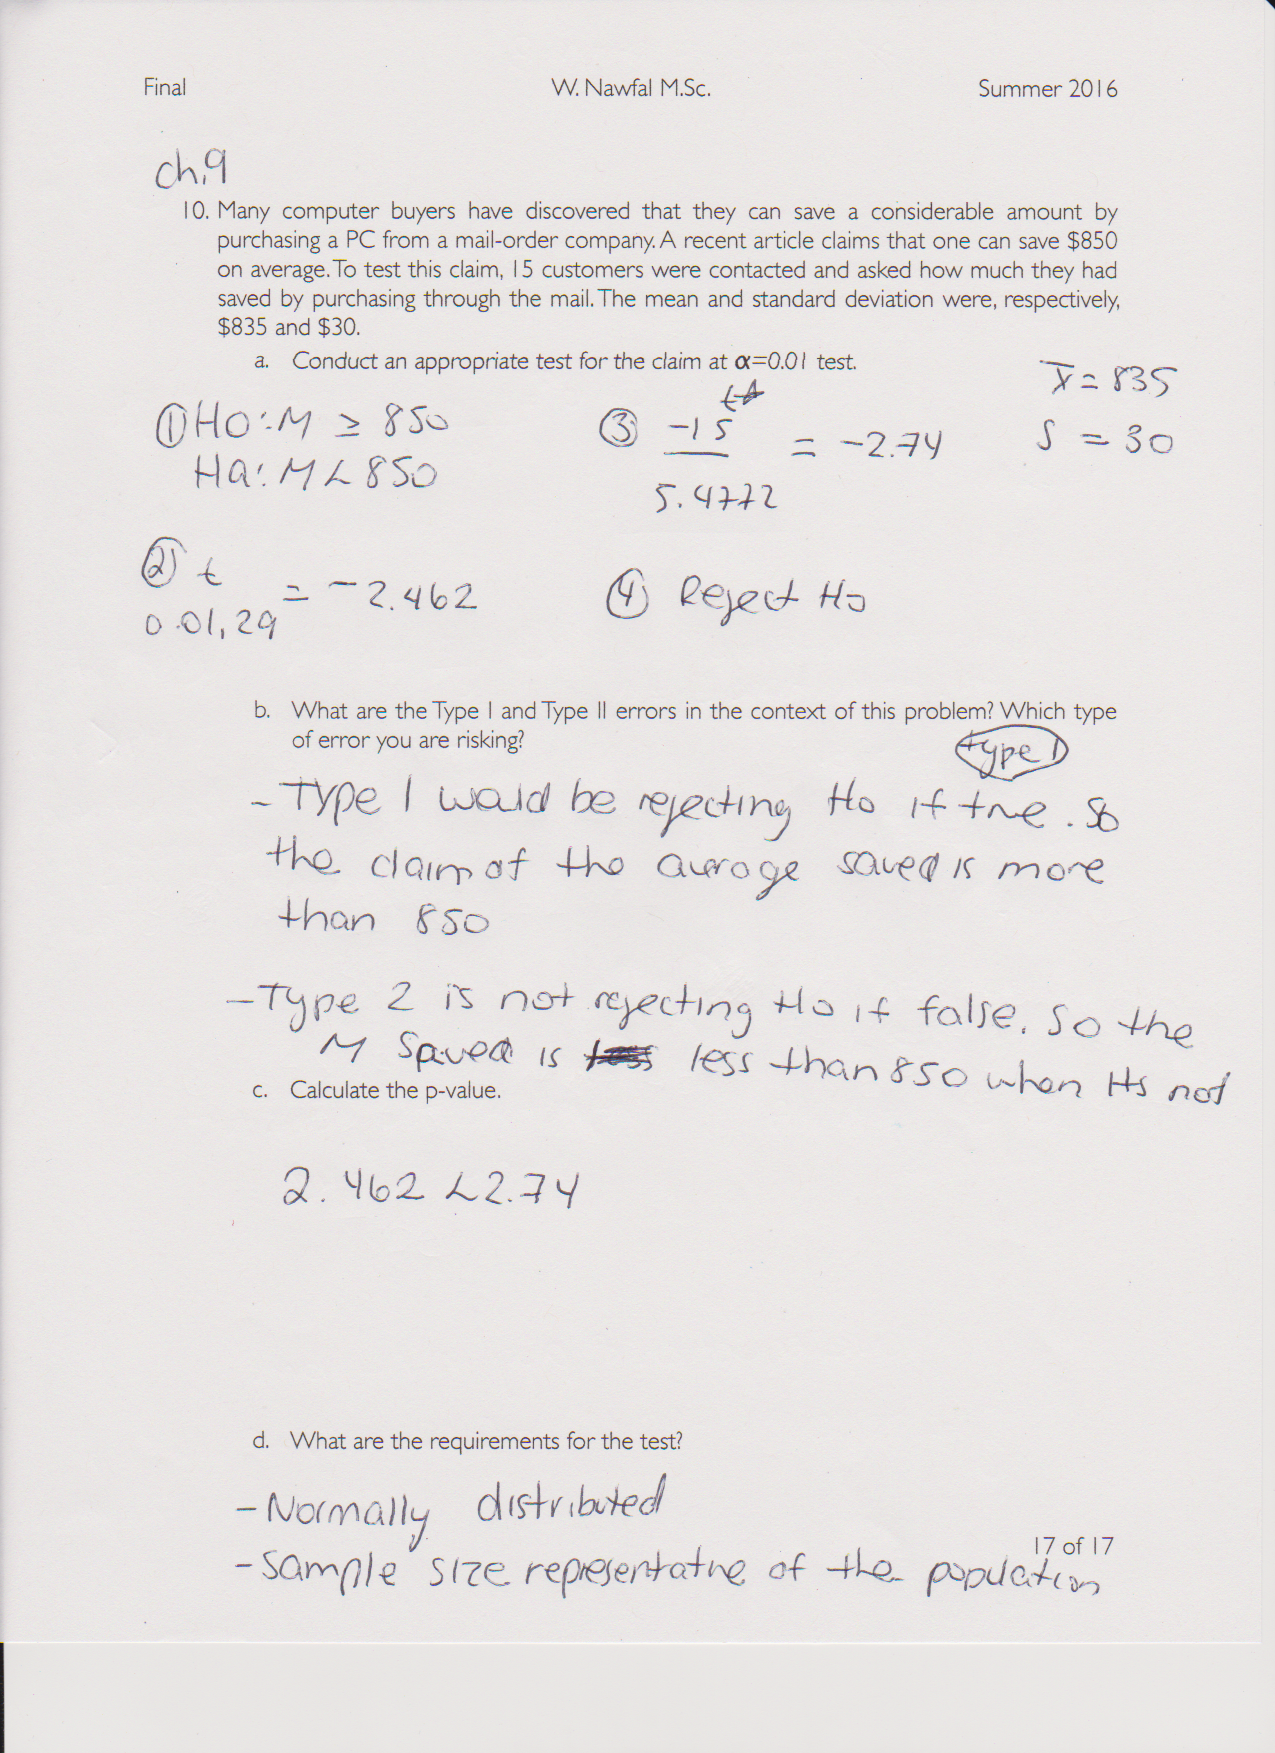 Final W. Nawfal M.Sc. Summer 2016
ch.9
10. Many computer buyers have discovered that they can save a considerable amount by
purchasing a PC from a mail-order company. A recent article claims that one can save $850
on average. To test this claim, 15 customers were contacted and asked how much they had
saved by purchasing through the mail. The mean and standard deviation were, respectively,
$835 and $30.
a. Conduct an appropriate test for the claim at α=0.01 test.
x̄ = 835
S = 30
① H0: M ≥ 850
Ha: M < 850
③ -15 / 5.4772 = -2.74
② t 0.01, 29 = -2.462
④ Reject Ho
b. What are the Type I and Type II errors in the context of this problem? Which type
of error you are risking?
type 1
- Type 1 would be rejecting Ho if true. So
the claim of the average saved is more
than 850
- Type 2 is not rejecting Ho if false. So the
M Saved is less than 850 when its not
c. Calculate the p-value.
2.462 < 2.74
d. What are the requirements for the test?
- Normally distributed
17 of 17
- Sample size representative of the population